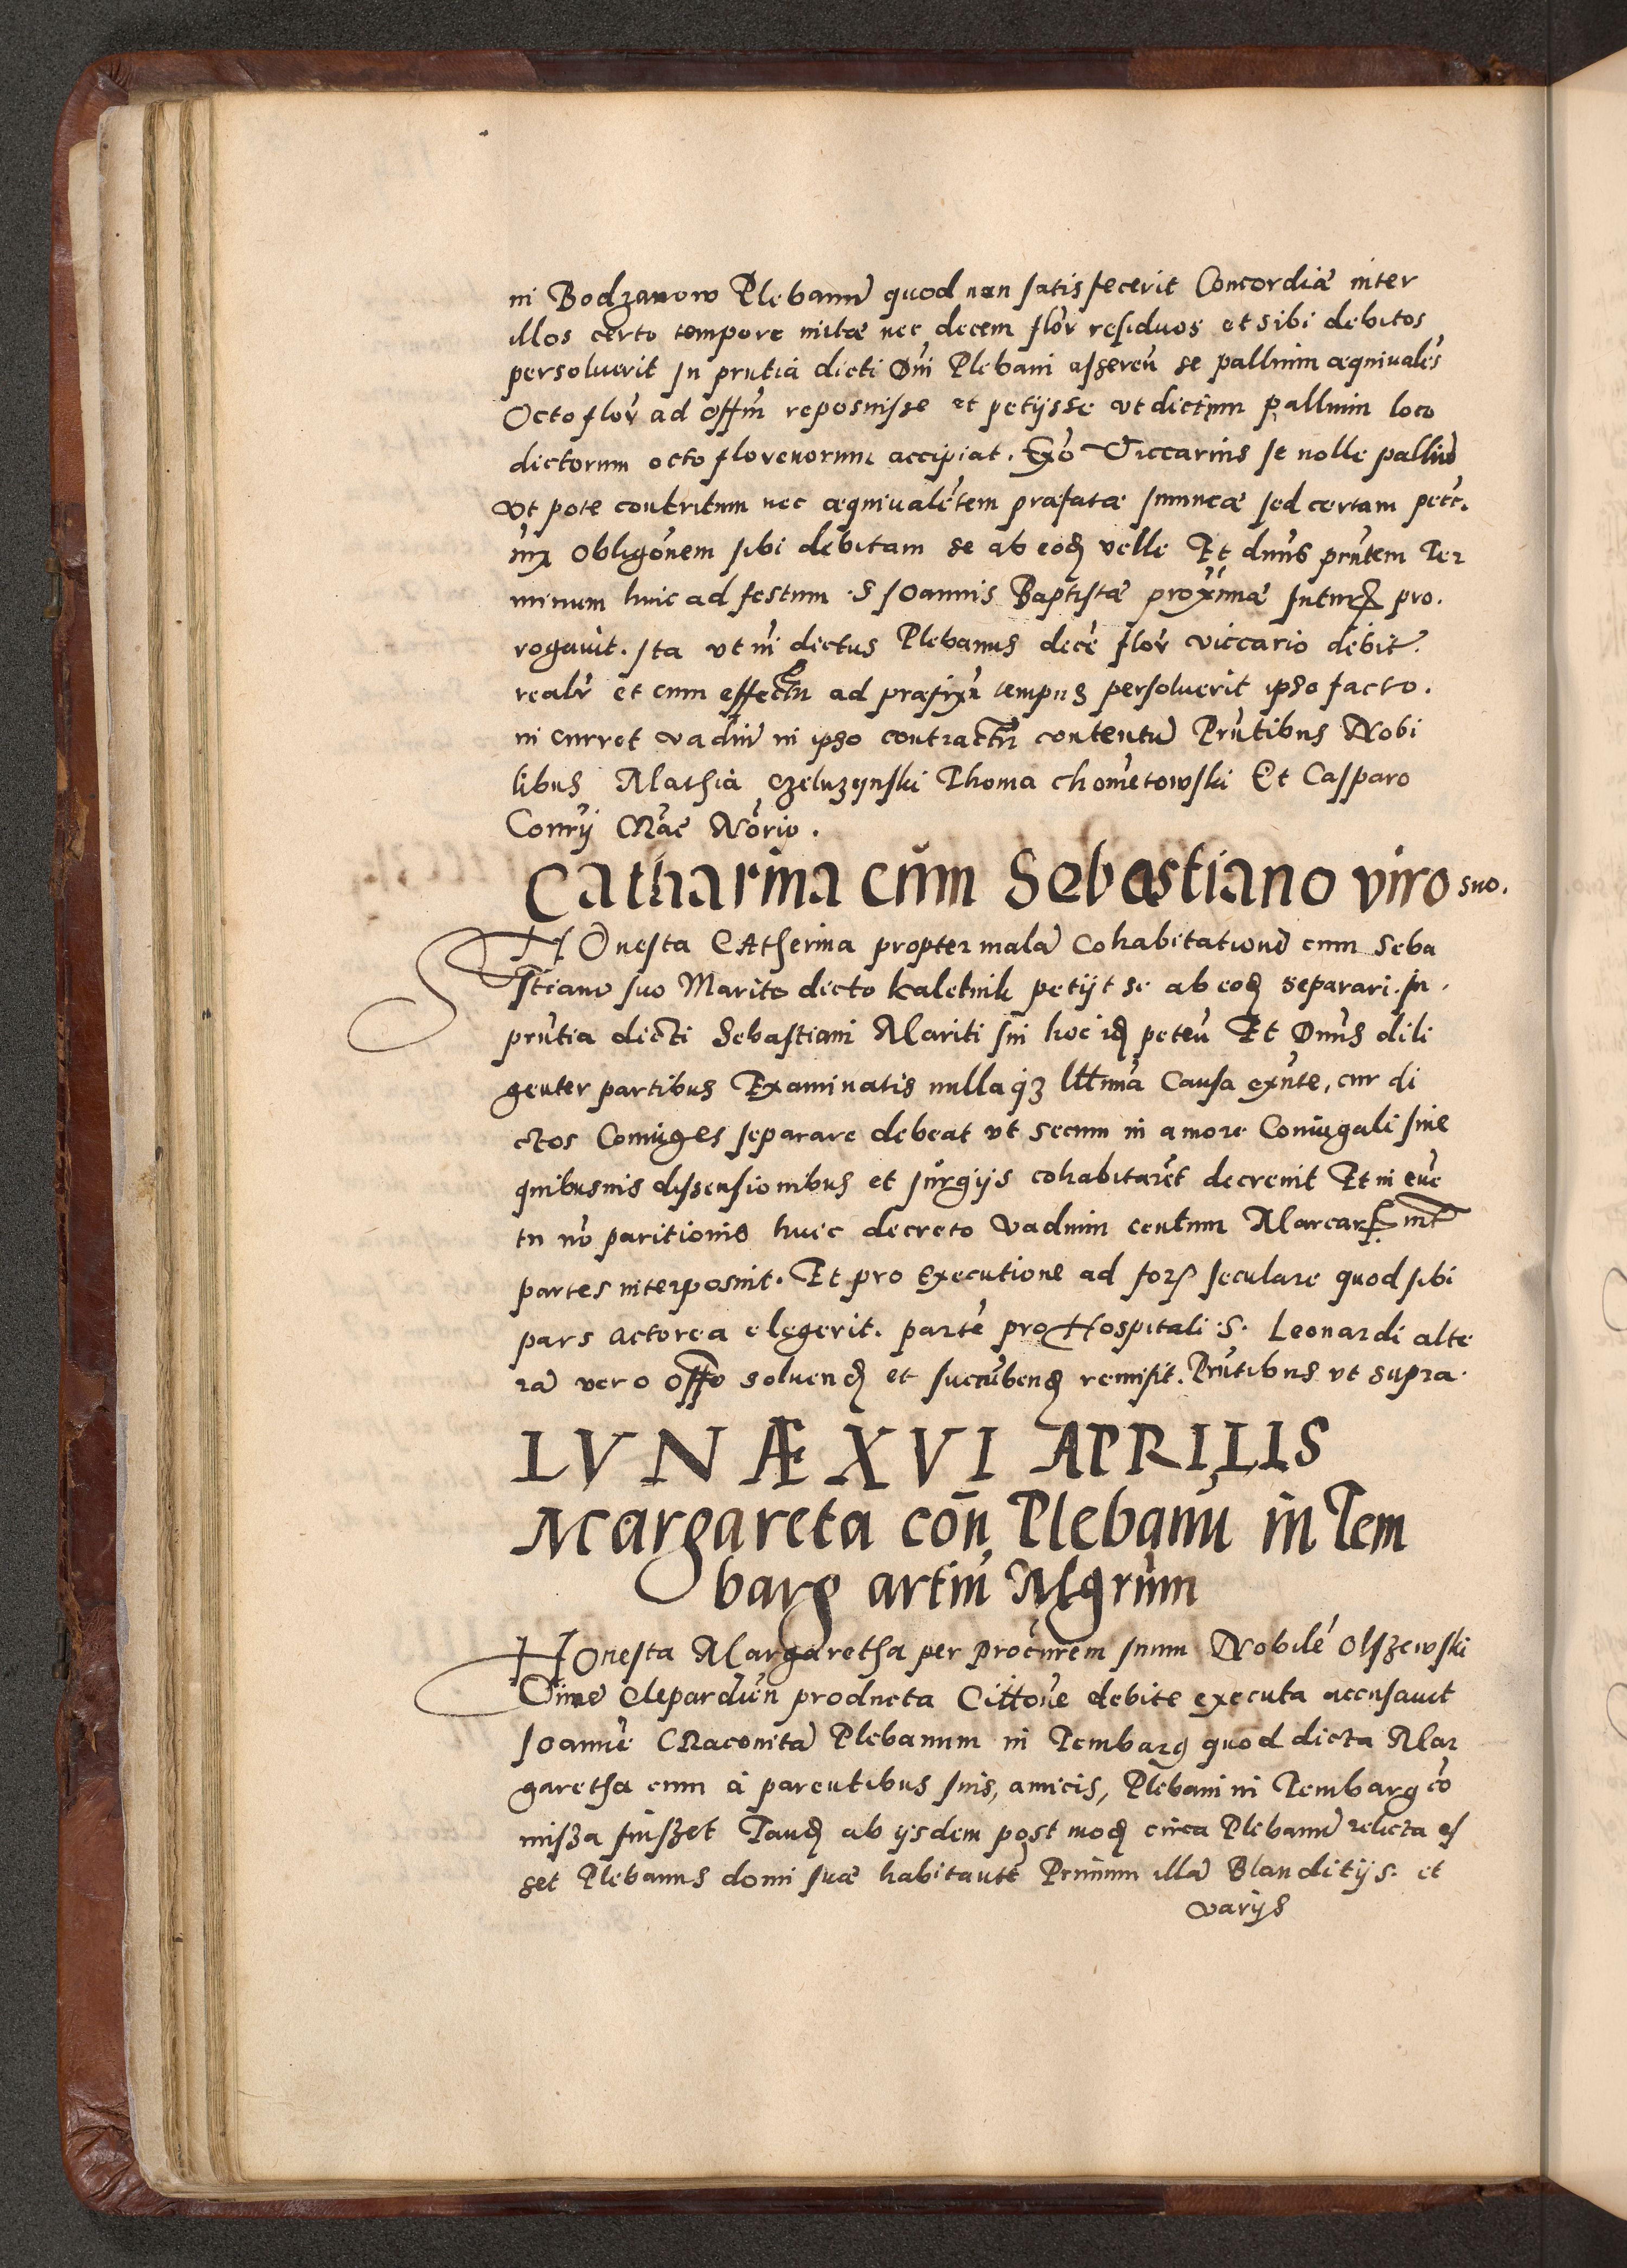 in Bodzanow Plebanũ quod non satisfecerit Concordiæ inter
illos certo tempore initæ nec decem flor̃ residuos et sibi debitos
persoluerit In prñtia dicti Dñi Plebani asserẽn se pallium æquiualẽs
Octo flor̃ ad offm̃ reposuisse et petijsse vt dictum pallium loco
dictorum octo florenorum accipiat. Viccarius se nolle palliũ
vt pote contritum nec æquiualẽtem præfatæ summæ sed certam pecc.
obligõnem sibi debitam se ab eod velle Et dñus prñtem Ter
minum huic ad festum S Ioannis Baptistæ proximæ futur pro.
rogauit. Ita vt ni dictus Plebanus decẽ flor̃ viccario debit
realr̃ et cum effectu ad præfixũ tempus persoluerit ipso facto.
in curret vadiũ in ipso contractu contentũ Prñtibus Nobi
libus Mathia Czeluzynski Thoma chometowski Et Casparo
Conrij Nõrio.
Catharina cum Sebastiano viro suo.
HOnesta CAtherina propter malã Cohabitationẽ cum Seba
stiano suo Marito dicto kaletnik petijt se ab eod separari. In.
prñtia dicti Sebastiani Mariti sui hoc id petẽn Et Dñus dili
genter partibus Examinatis nullaq3 lttima Causa exñte, cur di
ctos Coniuges separare debeat vt secum in amore Coniugali sine
quibusuis dissensionibus et Iurgijs cohabitarẽt decreuit Et in euẽ
tu nõ paritionis huic decreto vadium centum Marcar int
partes interposuit. Et pro Executione ad for seculare quod sibi
pars actorea elegerit. partẽ pro Hospitali S. Leonardi alte
rã vero offo soluend et succũbend remisit. Prñtibus vt supra.
LVNÆ XVI APRILIS
Margareta con Plebanũ in Tem
barg artiũ Mgrum
HOnesta Margaretha per procurem suum Nobilẽ Olszewski
producta Cittõne debite executa accusauit
Ioannẽ CRaconitã Plebanum in Tembarg quod dicta Mar
garetha cum à parentibus suis, amicis, Plebani in Tembarg cõ
missa fuisset Tand ab ijsdem post mod circa Plebanũ relicta es
set Plebanus domi suæ habitantẽ Primum illã Blanditijs. et
varijs